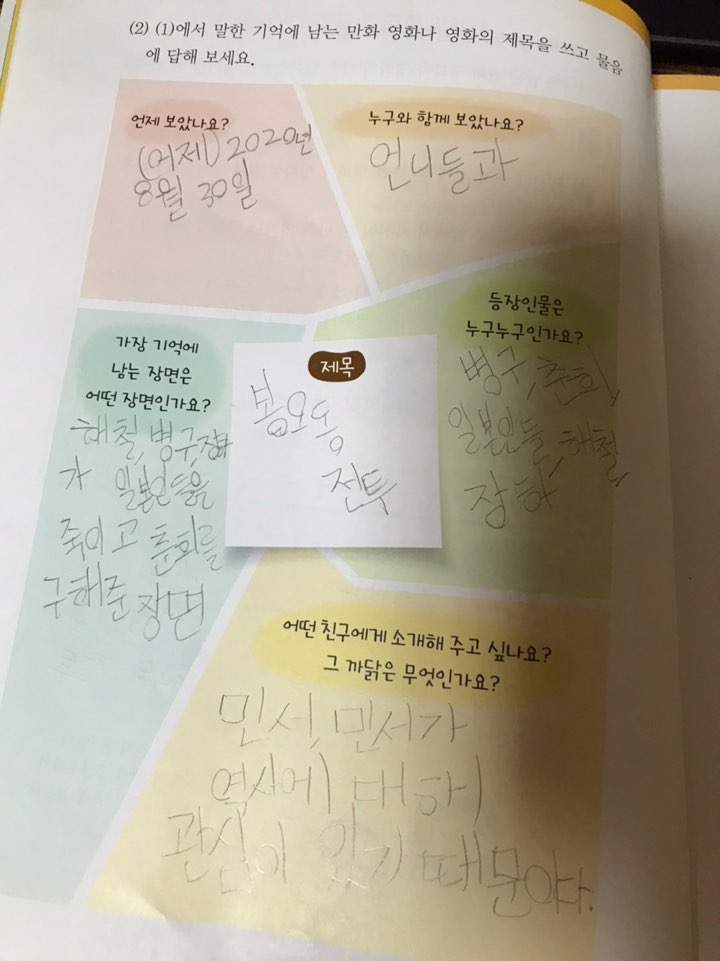 (2) (1)에서 말한 기억에 남는 만화 영화나 영화의 제목을 쓰고 물음
에 답해 보세요.
언제 보았나요?
(어제) 2020년
8월 30일
누구와 함께 보았나요?
언니들과
등장인물은
누구누구인가요?
병구, 춘희,
일본인들, 해철,
장하
제목
봉오동
전투
가장 기억에
남는 장면은
어떤 장면인가요?
해철, 병구, 장하
가 일본인들을
죽이고 춘희를
구해준 장면
어떤 친구에게 소개해 주고 싶나요?
그 까닭은 무엇인가요?
민서, 민서가
역사에 대해
관심이 있기 때문이다.